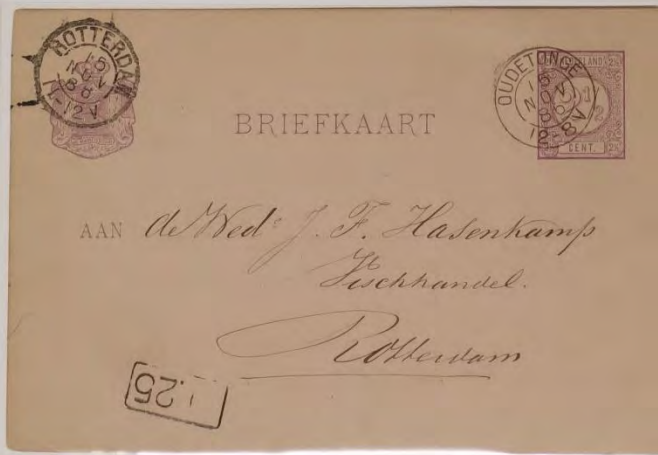 ROTTERDAM
15
NOV
86
11-12V
OUDETONGE
15
NOV
86
12-8V
NEDERLAND
2½
CENT.
BRIEFKAART
AAN de Wed. J. F. Hasenkamp
Vischhandel.
Rotterdam
.25